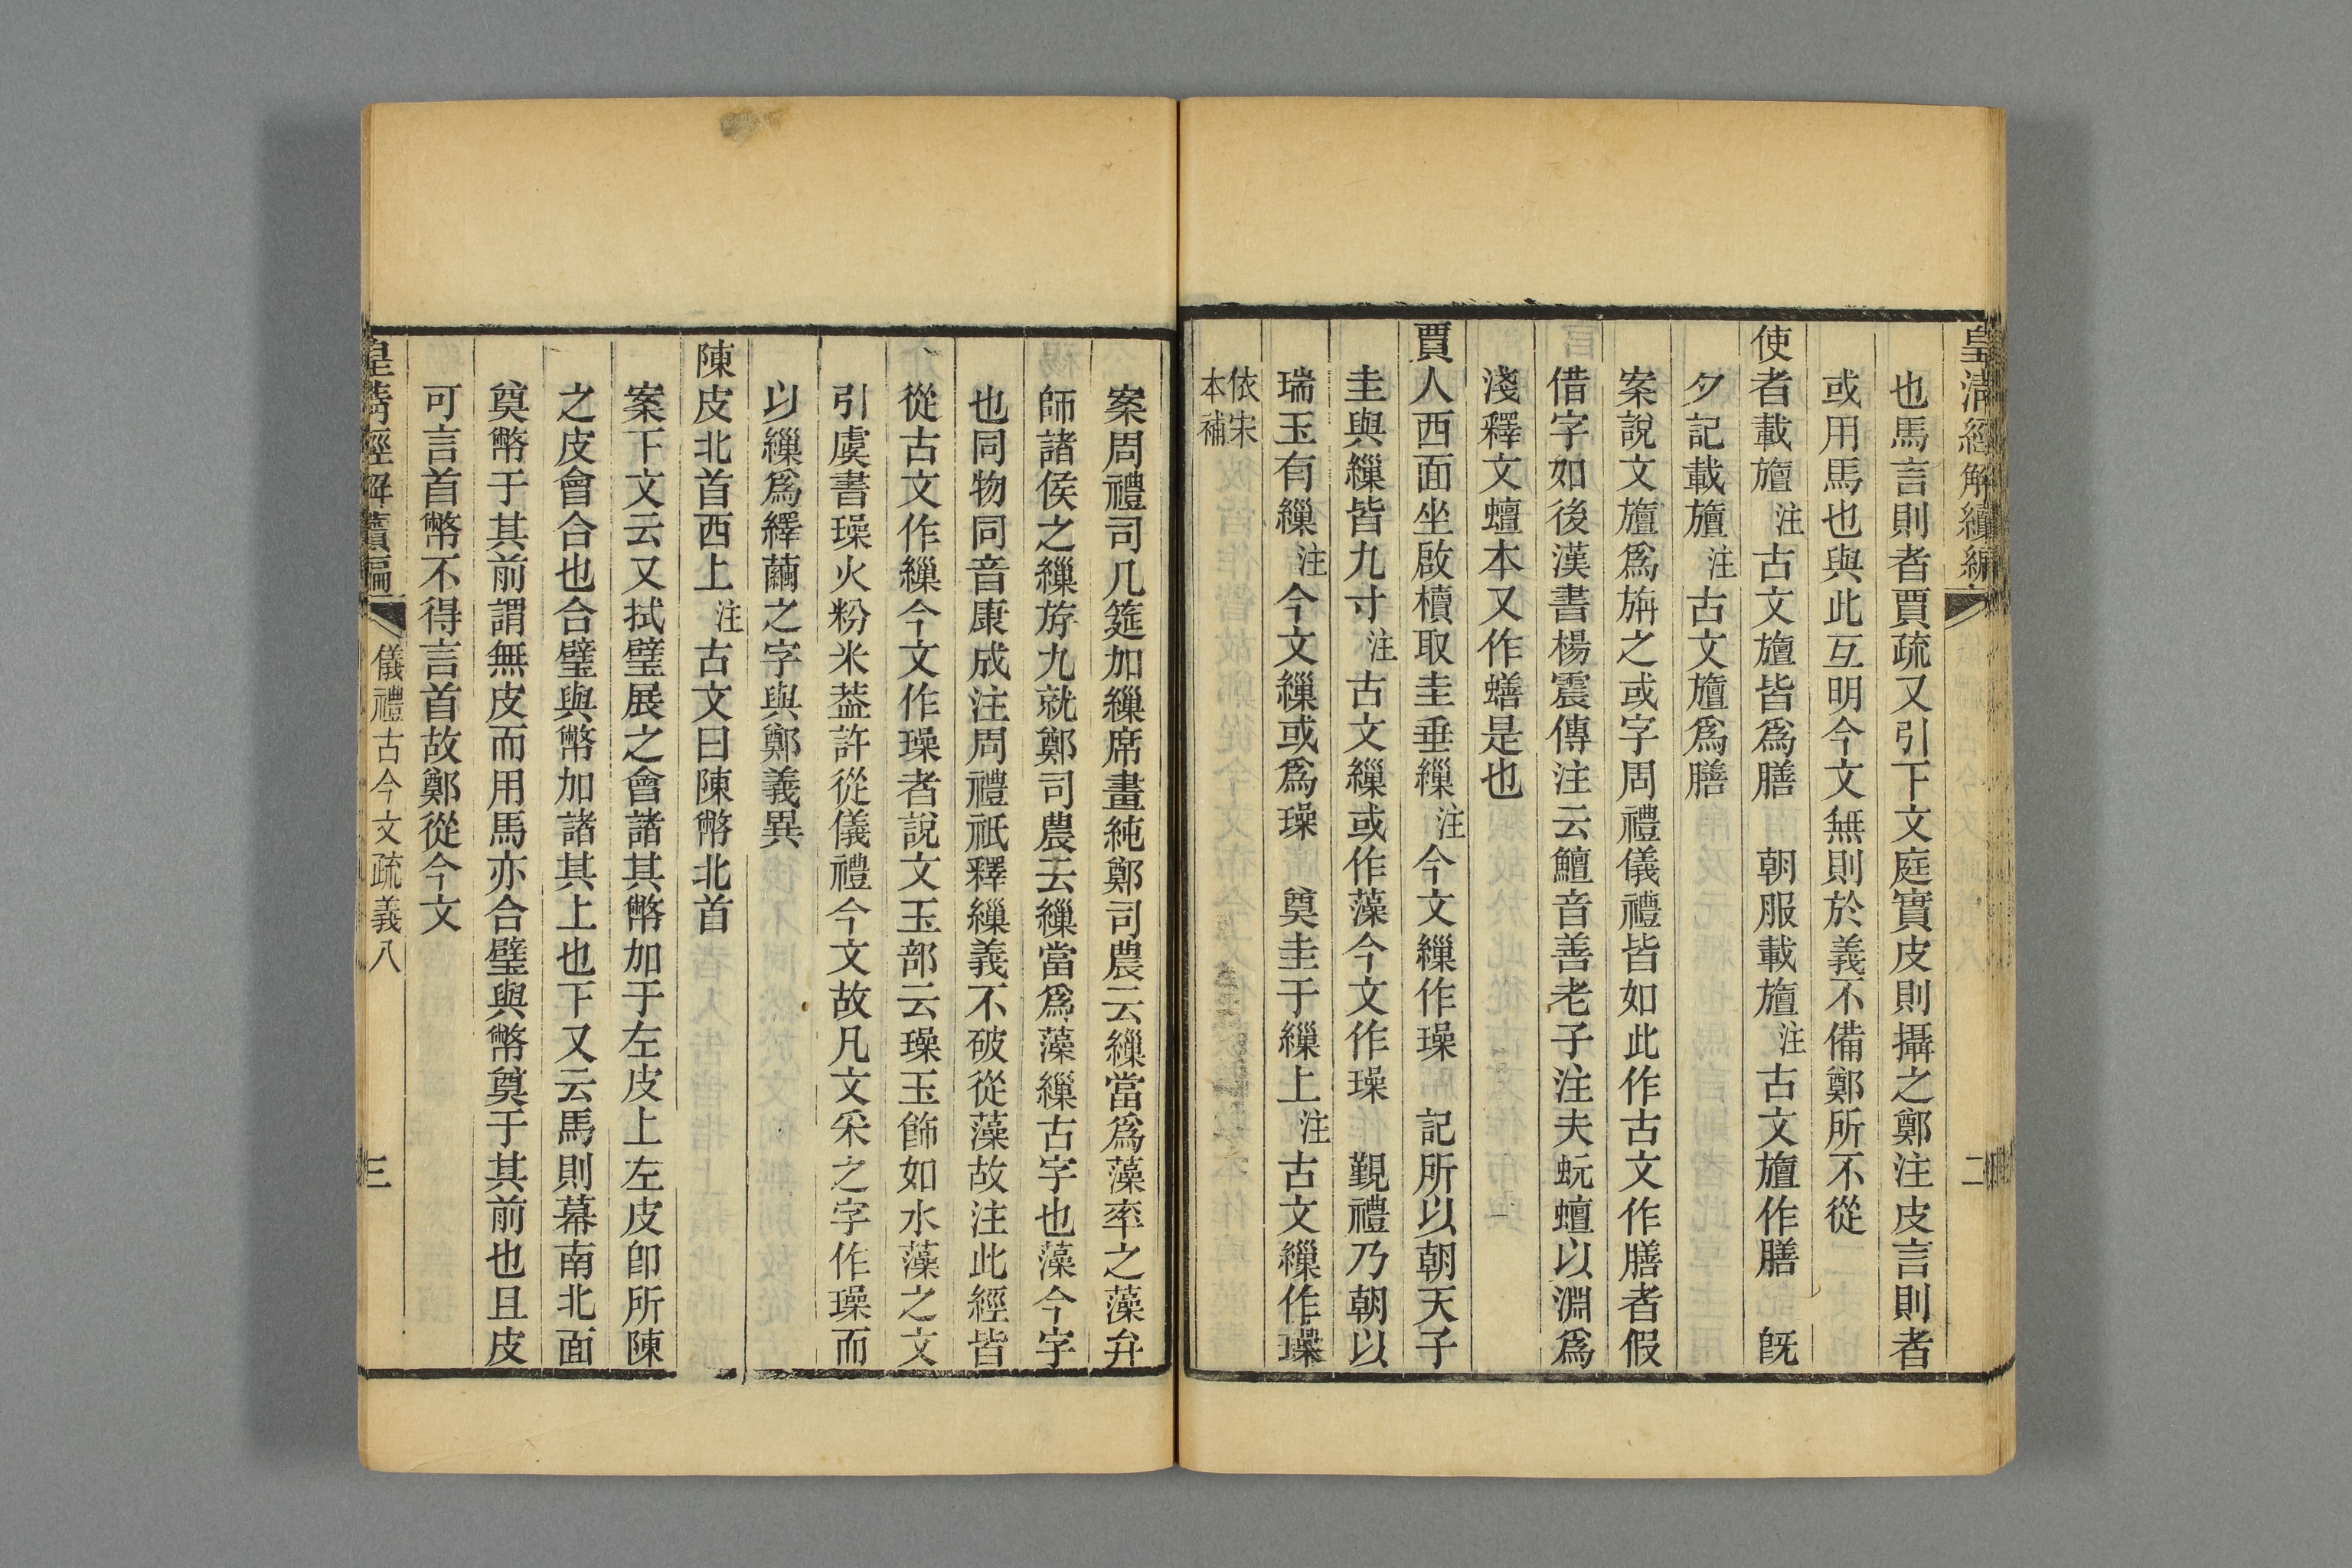 皇清經解續編
二
也馬言則者賈疏又引下文庭實皮則攝之鄭注皮言則者
或用馬也與此互明今文無則於義不備鄭所不從
使者載旜注古文旜皆爲膳　朝服載旜注古文旜作膳　旣
夕記載旜注古文旜爲膳
案說文旜爲旃之或字周禮儀禮皆如此作古文作膳者假
借字如後漢書楊震傳注云鱣音善老子注夫蚖蟺以淵爲
淺釋文蟺本又作蟮是也
賈人西面坐啟櫝取圭垂繅注今文繅作璪　記所以朝天子
圭與繅皆九寸注古文繅或作藻今文作璪　覲禮乃朝以
瑞玉有繅注今文繅或爲璪　奠圭于繅上注古文繅作璪
依宋
本補
案周禮司几筵加繅席畫純鄭司農云繅當爲藻率之藻弁
師諸侯之繅斿九就鄭司農云繅當爲藻繅古字也藻今字
也同物同音康成注周禮祇釋繅義不破從藻故注此經皆
從古文作繅今文作璪者說文玉部云璪玉飾如水藻之文
引虞書璪火粉米葢許從儀禮今文故凡文采之字作璪而
以繅爲繹繭之字與鄭義異
陳皮北首西上注古文曰陳幣北首
案下文云又拭璧展之會諸其幣加于左皮上左皮卽所陳
之皮會合也合璧與幣加諸其上也下又云馬則幕南北面
奠幣于其前謂無皮而用馬亦合璧與幣奠于其前也且皮
可言首幣不得言首故鄭從今文
皇淸經解續編
儀禮古今文疏義八
三